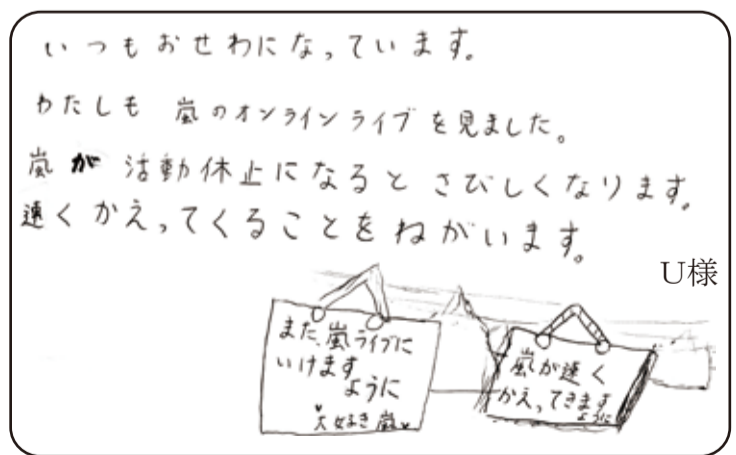 いつもおせわになっています。
わたしも 嵐のオンラインライブを見ました。
嵐が 活動休止になると さびしくなります。
速くかえってくることをねがいます。
U様
また、嵐ライブに
いけます
ように
♥大好き嵐♥
嵐が速く
かえってきます
ように